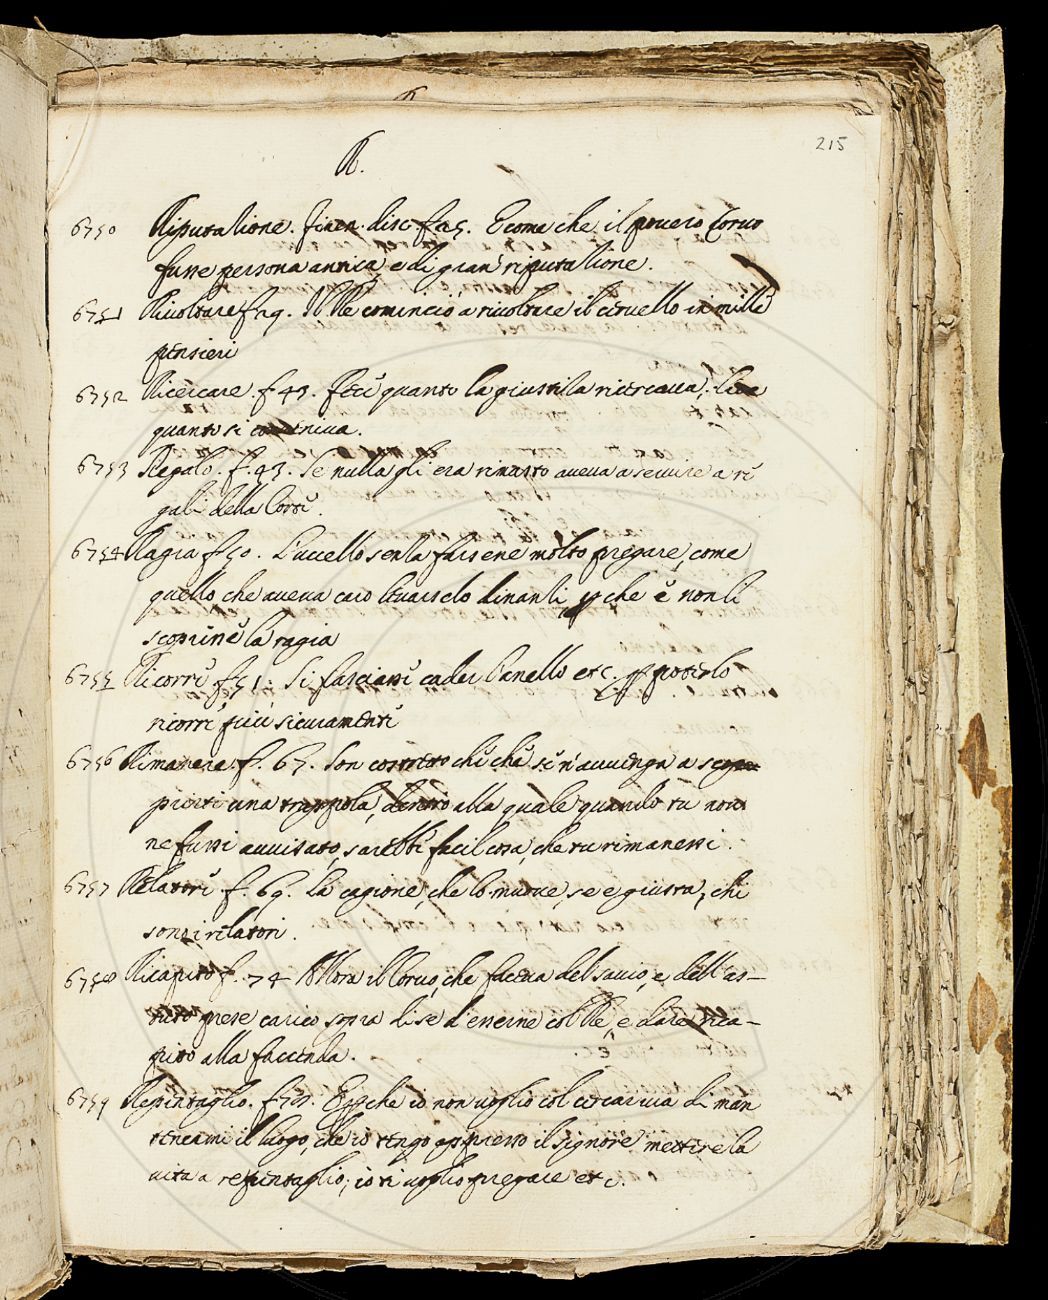 R.
215
6750 Riputazione. Firen. disc. f. 25. E come che il povero Corvo
fusse persona antica, e di gran riputazione.
6751 Rivoltare f. 29. Il Re cominciò a rivoltare il cervello in mille
pensieri
6752 Ricercare. f. 43. Fece quanto la giustizia ricercava,
quanto si conveniva.
6753 Regalo. f. 43. Se nulla gli era rimasto aveva a servire a re
gali della Corte.
6754 Ragia f. 50. L'uccello senza farsene molto pregare, come
quello che aveva caro levarselo dinanzi pche e' non li
scoprisse la ragia
6755 Ricorre f. 51. Si lasciasse cader l'anello etc. p poterlo
ricorre più sicuramente
6756 Rimanere. f. 65. Son costretto che che se n'avvenga a
una trappola, dentro alla quale quando tu non
ne fussi avvisato, sarebbe facil cosa, che tu rimanessi.
6757 Relatore f. 69. La cagione, che lo muove, se è giusta, chi
sono i relatori.
6758 Ricapito f. 74 Allora il Corvo, che faceva del savio, e dell'as-
tuto prese carico sopra di se d'esserne col Re, e dare rica-
pito alla faccenda.
6759 Repentaglio. f. Epche io non voglio col cercar via di man
tenermi il luogo, che io tengo appresso il signore mettere la
vita a repentaglio, io ti voglio pregare etc.